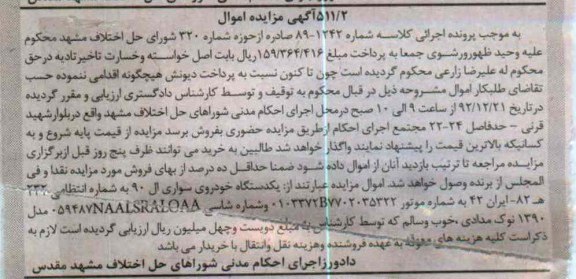 ۵۱۱/۲آگهی مزایده اموال
به موجب پرونده اجرائی کلاسه شماره ۱۲۴۲-۸۹ صادره ازحوزه شماره ۳۲۰ شورای حل اختلاف مشهد محکوم
علیه وحید ظهورورشوی جمعا به پرداخت مبلغ ۱۵۹/۳۶۴/۴۱۶ریال بابت اصل خواسته وخسارت تاخیرتادیه درحق
محکوم له علیرضا زارعی محکوم گردیده است چون تا کنون نسبت به پرداخت دیونش هیچگونه اقدامی ننموده حسب
تقاضای طلبکار اموال مشروحه ذیل در قبال محکوم به توقیف و توسط کارشناس دادگستری ارزیابی و مقرر گردیده
درتاریخ ۹۲/۱۲/۲۱ از ساعت ۹ الی ۱۰ صبح درمحل اجرای احکام مدنی شوراهای حل اختلاف مشهد واقع دربلوارشهید
قرنی – حدفاصل ۲۴-۲۲ مجتمع اجرای احکام ازطریق مزایده حضوری بفروش برسد مزایده از قیمت پایه شروع و به
کسانیکه بالاترین قیمت را پیشنهاد نمایند واگذار خواهد شد طالبین به خرید می توانند ظرف پنج روز قبل ازبرگزاری
مزایده مراجعه تا ترتیب بازدید آنان از اموال داده شود ضمنا حداقل ده درصد از بهای فروش مورد مزایده نقدا و فی
المجلس از برنده وصول خواهد شد. اموال مزایده عبارتند از: یکدستگاه خودروی سواری ال ۹۰ به شماره انتظامی ۲۳۲
هـ ۸۲- ایران ۴۲ به شماره موتور ۰۱۰۳۳۷۲B۷۷۰۲۰۳۵۳۲۲ وشماره شاسی ۰۵۹۴۸۷NAALSRALOAA مدل
۱۳۹۰ نوک مدادی ،خوب وسالم که توسط کارشناس به مبلغ دویست وچهل میلیون ریال ارزیابی گردیده است لازم به
ذکراست کلیه هزینه های معوقه به عهده فروشنده وهزینه نقل وانتقال با خریدار می باشد
دادورزاجرای احکام مدنی شوراهای حل اختلاف مشهد مقدس